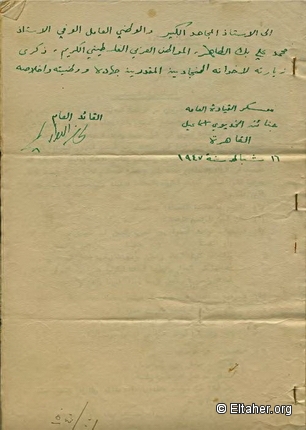 الى الاستاذ المجاهد الكبير والوطني العامل الوفي الاستاذ
محمد علي بك الطاهر والمواطن العربي الفلسطيني الكريم، ذكرى
زيارته لاخوانه المقدرين جهاده ووطنيته واخلاصه
معسكر القيادة العامه
القاهرة
١٦ شباط سنة ١٩٤٧
القائد العام
© Eltaher.org